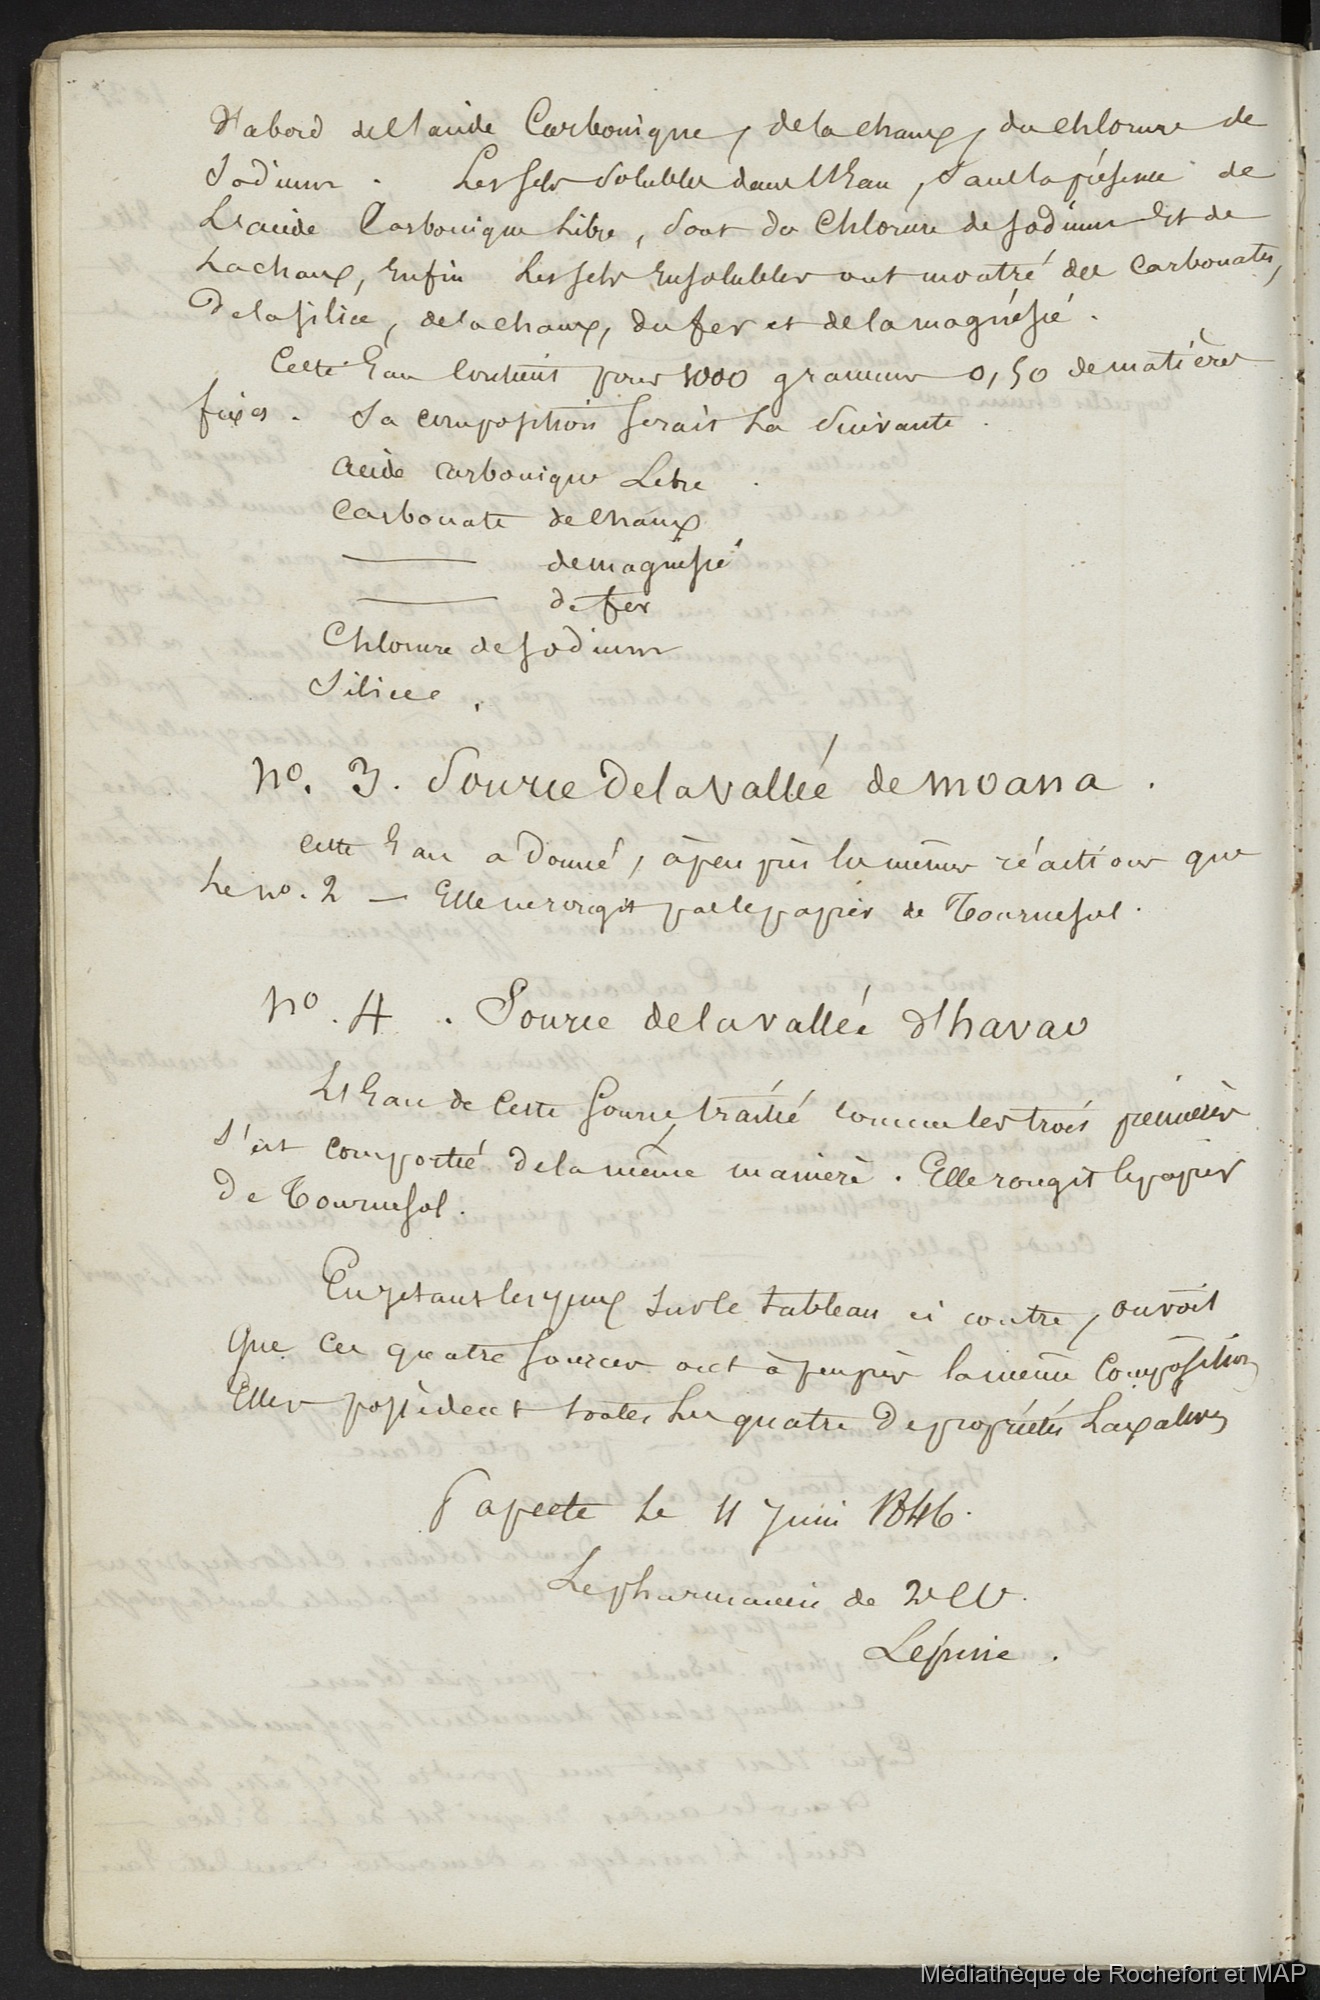 d'abord de l'acide Carbonique, de la chaux, du chlorure de
Sodium. Les sels Solubles dans l'Eau, Sans la présence de
L'acide Carbonique Libre, sont du Chlorure de sodium Et de
La chaux, Enfin Les sels Insolubles ont montré des Carbonates,
De la silice, de la chaux, du fer et de la magnésie.
Cette Eau Contient pour 1000 grammes 0,50 de matières
fixes. Sa composition serait La Suivante.
acide carbonique Libre.
Carbonate de chaux
——— de magnésie
——— de fer
Chlorure de sodium
Silice.
No. 3. Source De la vallée de moana.
Cette Eau a Donné, à peu près les mêmes réactions que
Le no. 2 — Elle ne rougit pas le papier de Tournesol.
No. 4. Source de la vallée d'havao
L'Eau de Cette source, traitée comme les trois premières
s'est comportée de la même manière. Elle rougit le papier
De Tournesol.
En jetant les yeux sur le tableau ci contre, on voit
Que Ces quatre sources ont à peu près la même Composition
Elles possèdent toutes Les quatre De propriétés Laxatives
Papeete Le 11 Juin 1846.
Le pharmacien de 2e Cl.
Lépine.
Médiathèque de Rochefort et MAP